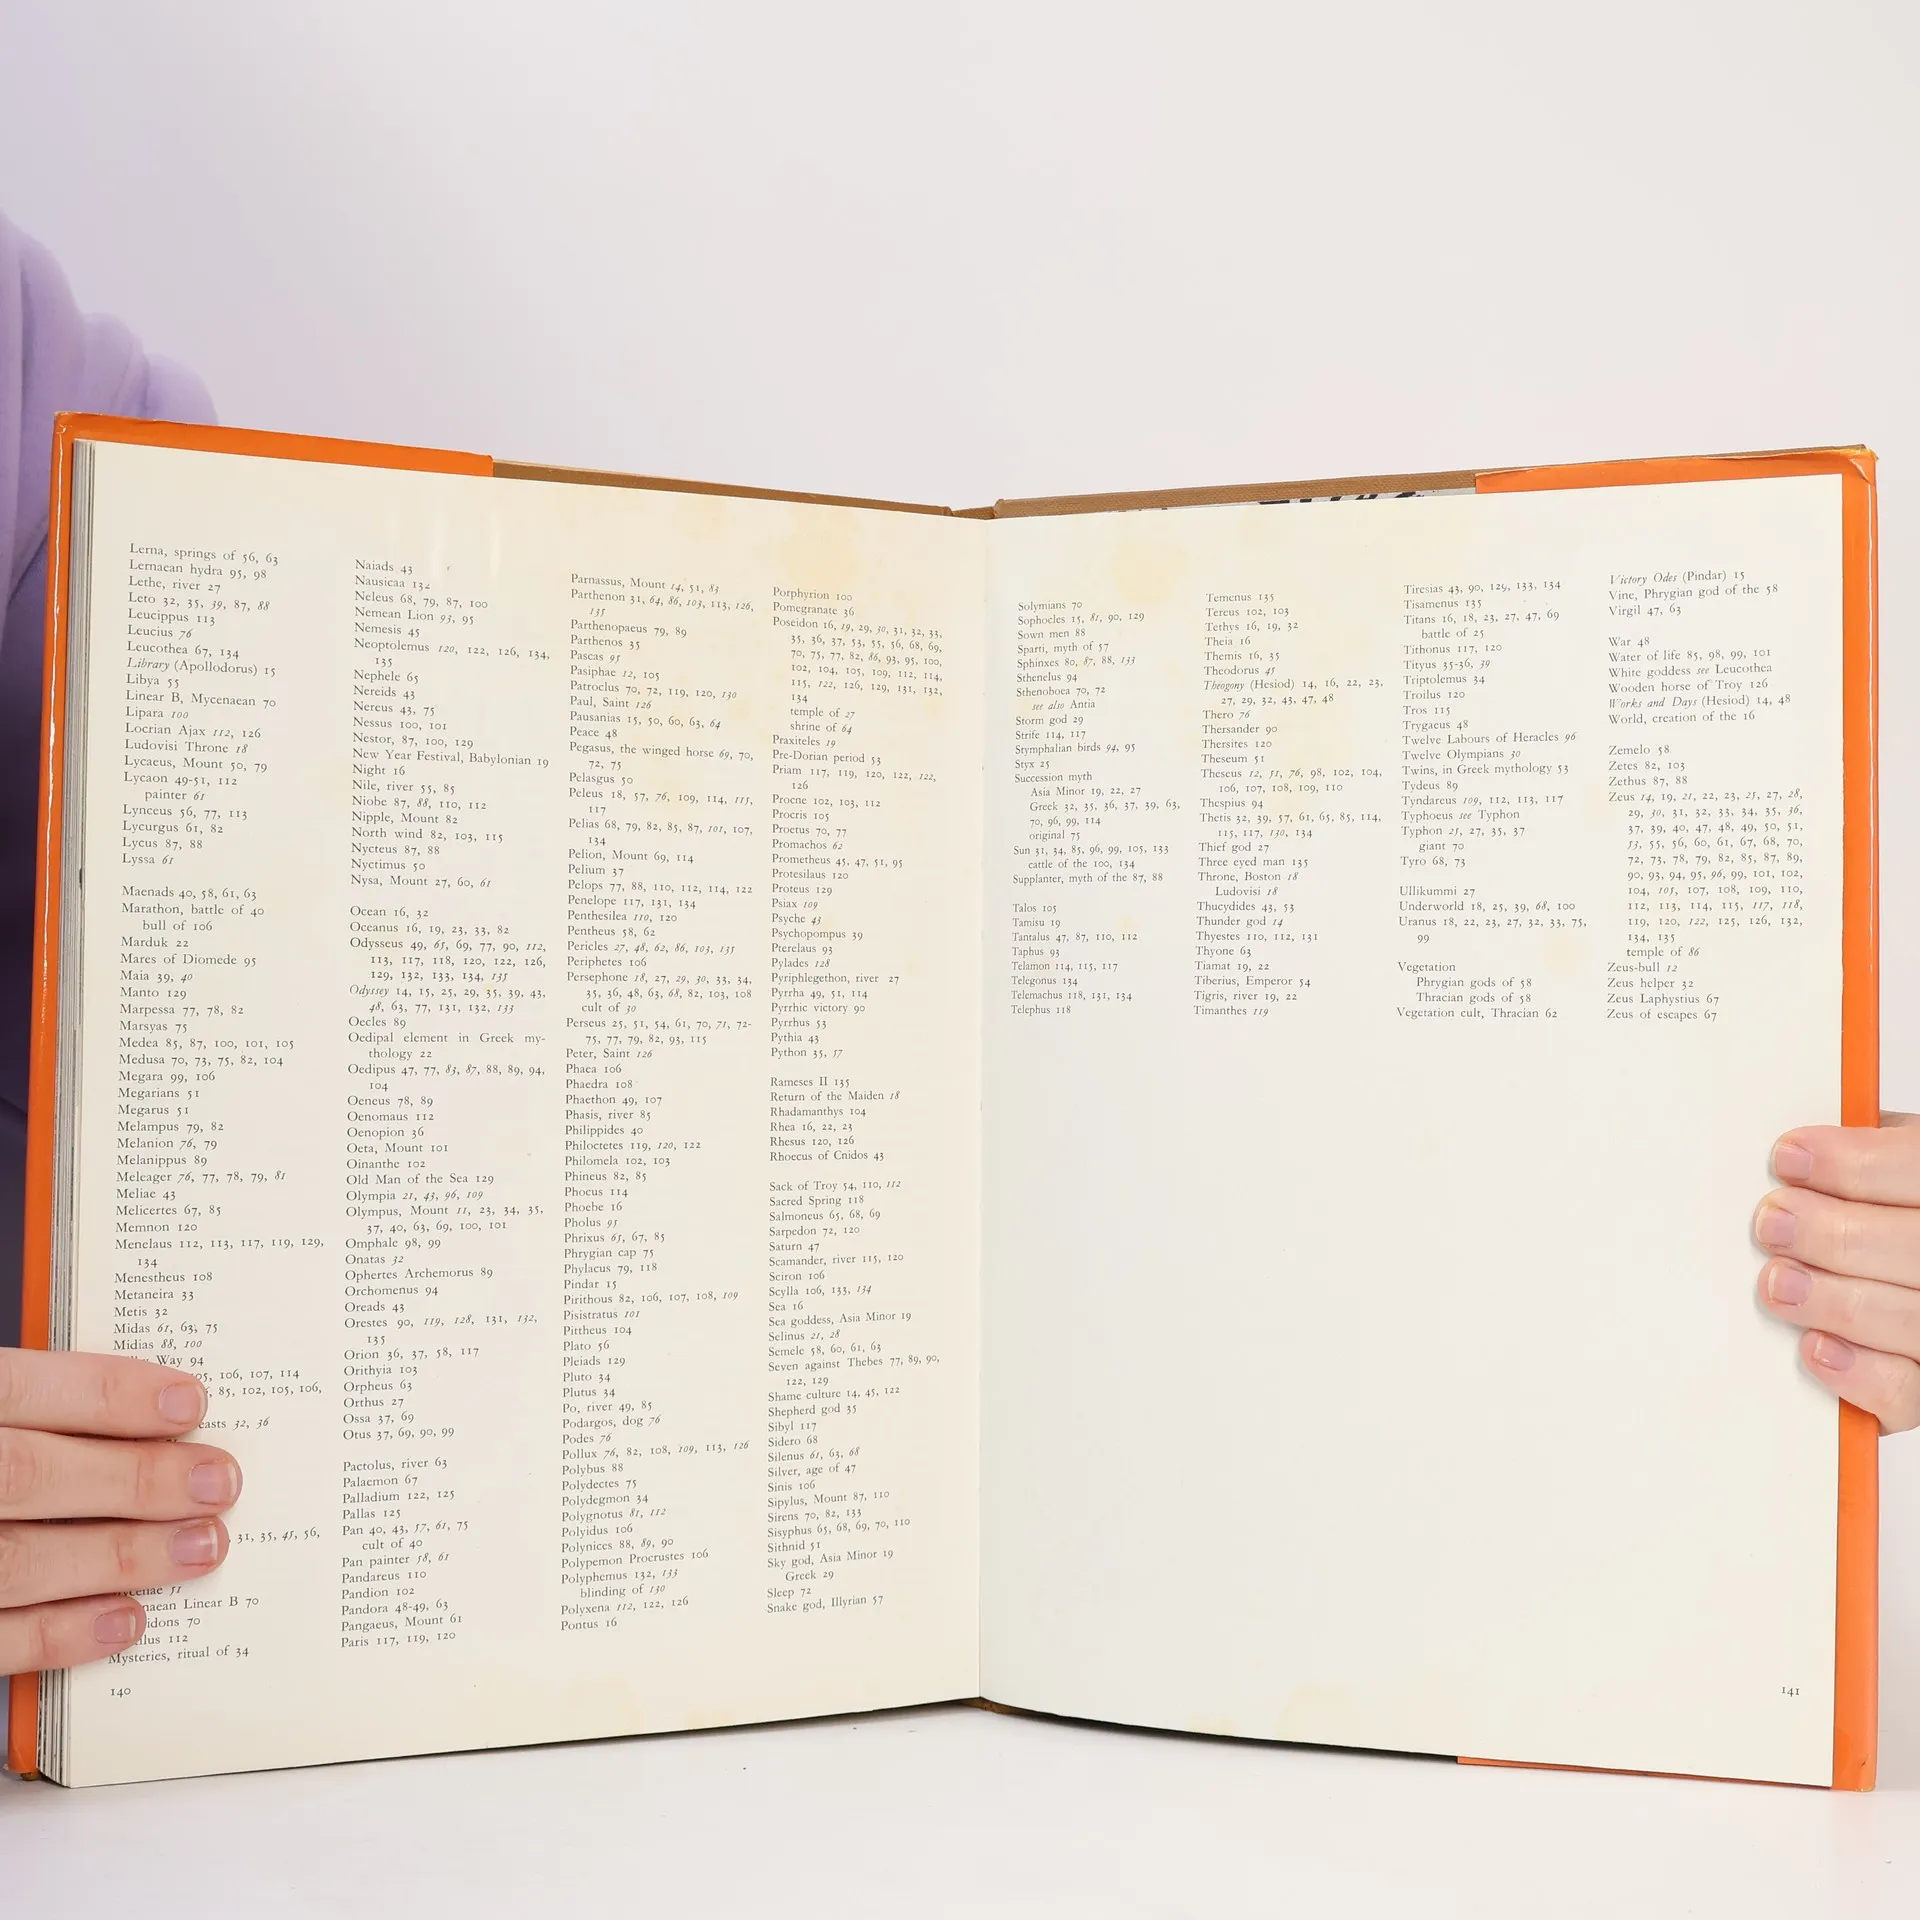 Lerna, springs of 56, 63
Lernaean hydra 95, 98
Lethe, river 27
Leto 32, 35, 39, 87, 88
Leucippus 113
Leucius 76
Leucothea 67, 134
Library (Apollodorus) 15
Libya 55
Linear B, Mycenaean 70
Lipara 100
Locrian Ajax 112, 126
Ludovisi Throne 18
Lycaeus, Mount 50, 79
Lycaon 49-51, 112
painter 61
Lynceus 56, 77, 113
Lycurgus 61, 82
Lycus 87, 88
Lyssa 61
Maenads 40, 58, 61, 63
Marathon, battle of 40
bull of 106
Marduk 22
Mares of Diomede 95
Maia 39, 40
Manto 129
Marpessa 77, 78, 82
Marsyas 75
Medea 85, 87, 100, 101, 105
Medusa 70, 73, 75, 82, 104
Megara 99, 106
Megarians 51
Megarus 51
Melampus 79, 82
Melanion 76, 79
Melanippus 89
Meleager 76, 77, 78, 79, 81
Meliae 43
Melicertes 67, 85
Memnon 120
Menelaus 112, 113, 117, 119, 129,
134
Menestheus 108
Metaneira 33
Metis 32
Midas 61, 63, 75
Midias 88, 100
Way 94
105, 106, 107, 114
85, 102, 105, 106,
32, 36
31, 35, 45, 56,
Mycenae 51
Linear B 70
70
112
Mysteries, ritual of 34
140
Naiads 43
Nausicaa 132
Neleus 68, 79, 87, 100
Nemean Lion 93, 95
Nemesis 45
Neoptolemus 120, 122, 126, 134,
135
Nephele 65
Nereids 43
Nereus 43, 75
Nessus 100, 101
Nestor, 87, 100, 129
New Year Festival, Babylonian 19
Night 16
Nile, river 55, 85
Niobe 87, 88, 110, 112
Nipple, Mount 82
North wind 82, 103, 115
Nycteus 87, 88
Nyctimus 50
Nysa, Mount 27, 60, 61
Ocean 16, 32
Oceanus 16, 19, 23, 33, 82
Odysseus 49, 65, 69, 77, 90, 112,
113, 117, 118, 120, 122, 126,
129, 132, 133, 134, 135
Odyssey 14, 15, 25, 29, 35, 39, 43,
48, 63, 77, 131, 132, 133
Oecles 89
Oedipal element in Greek my-
thology 22
Oedipus 47, 77, 83, 87, 88, 89, 94,
104
Oeneus 78, 89
Oenomaus 112
Oenopion 36
Oeta, Mount 101
Oinanthe 102
Old Man of the Sea 129
Olympia 21, 43, 96, 109
Olympus, Mount 11, 23, 34, 35,
37, 40, 63, 69, 100, 101
Omphale 98, 99
Onatas 32
Ophertes Archemorus 89
Orchomenus 94
Oreads 43
Orestes 90, 119, 128, 131, 132,
135
Orion 36, 37, 58, 117
Orithyia 103
Orpheus 63
Orthus 27
Ossa 37, 69
Otus 37, 69, 90, 99
Pactolus, river 63
Palaemon 67
Palladium 122, 125
Pallas 125
Pan 40, 43, 57, 61, 75
cult of 40
Pan painter 58, 61
Pandareus 110
Pandion 102
Pandora 48-49, 63
Pangaeus, Mount 61
Paris 117, 119, 120
Parnassus, Mount 14, 51, 83
Parthenon 31, 64, 86, 103, 113, 126,
135
Parthenopaeus 79, 89
Parthenos 35
Pascas 95
Pasiphae 12, 105
Patroclus 70, 72, 119, 120, 130
Paul, Saint 126
Pausanias 15, 50, 60, 63, 64
Peace 48
Pegasus, the winged horse 69, 70,
72, 75
Pelasgus 50
Peleus 18, 57, 76, 109, 114, 115,
117
Pelias 68, 79, 82, 85, 87, 101, 107,
134
Pelion, Mount 69, 114
Pelium 37
Pelops 77, 88, 110, 112, 114, 122
Penelope 117, 131, 134
Penthesilea 110, 120
Pentheus 58, 62
Pericles 27, 48, 62, 86, 103, 135
Periphetes 106
Persephone 18, 27, 29, 30, 33, 34,
35, 36, 48, 63, 68, 82, 103, 108
cult of 30
Perseus 25, 51, 54, 61, 70, 71, 72-
75, 77, 79, 82, 93, 115
Peter, Saint 126
Phaea 106
Phaedra 108
Phaethon 49, 107
Phasis, river 85
Philippides 40
Philoctetes 119, 120, 122
Philomela 102, 103
Phineus 82, 85
Phocus 114
Phoebe 16
Pholus 95
Phrixus 65, 67, 85
Phrygian cap 75
Phylacus 79, 118
Pindar 15
Pirithous 82, 106, 107, 108, 109
Pisistratus 101
Pittheus 104
Plato 56
Pleiads 129
Pluto 34
Plutus 34
Po, river 49, 85
Podargos, dog 76
Podes 76
Pollux 76, 82, 108, 109, 113, 126
Polybus 88
Polydectes 75
Polydegmon 34
Polygnotus 81, 112
Polyidus 106
Polynices 88, 89, 90
Polypemon Procrustes 106
Polyphemus 132, 133
blinding of 130
Polyxena 112, 122, 126
Pontus 16
Porphyrion 100
Pomegranate 36
Poseidon 16, 19, 29, 30, 31, 32, 33,
35, 36, 37, 53, 55, 56, 68, 69,
70, 75, 77, 82, 86, 93, 95, 100,
102, 104, 105, 109, 112, 114,
115, 122, 126, 129, 131, 132,
134
temple of 27
shrine of 64
Praxiteles 19
Pre-Dorian period 53
Priam 117, 119, 120, 122, 122,
126
Procne 102, 103, 112
Procris 105
Proetus 70, 77
Promachos 62
Prometheus 45, 47, 51, 95
Protesilaus 120
Proteus 129
Psiax 109
Psyche 43
Psychopompus 39
Pterelaus 93
Pylades 128
Pyriphlegethon, river 27
Pyrrha 49, 51, 114
Pyrrhic victory 90
Pyrrhus 53
Pythia 43
Python 35, 57
Rameses II 135
Return of the Maiden 18
Rhadamanthys 104
Rhea 16, 22, 23
Rhesus 120, 126
Rhoecus of Cnidos 43
Sack of Troy 54, 110, 112
Sacred Spring 118
Salmoneus 65, 68, 69
Sarpedon 72, 120
Saturn 47
Scamander, river 115, 120
Sciron 106
Scylla 106, 133, 134
Sea 16
Sea goddess, Asia Minor 19
Selinus 21, 28
Semele 58, 60, 61, 63
Seven against Thebes 77, 89, 90,
122, 129
Shame culture 14, 45, 122
Shepherd god 35
Sibyl 117
Sidero 68
Silenus 61, 63, 68
Silver, age of 47
Sinis 106
Sipylus, Mount 87, 110
Sirens 70, 82, 133
Sisyphus 65, 68, 69, 70, 110
Sithnid 51
Sky god, Asia Minor 19
Greek 29
Sleep 72
Snake god, Illyrian 57
Solymians 70
Sophocles 15, 81, 90, 129
Sown men 88
Sparti, myth of 57
Sphinxes 80, 87, 88, 133
Sthenelus 94
Sthenoboea 70, 72
see also Antia
Storm god 29
Strife 114, 117
Stymphalian birds 94, 95
Styx 25
Succession myth
Asia Minor 19, 22, 27
Greek 32, 35, 36, 37, 39, 63,
70, 96, 99, 114
original 75
Sun 31, 34, 85, 96, 99, 105, 133
cattle of the 100, 134
Supplanter, myth of the 87, 88
Talos 105
Tamisu 19
Tantalus 47, 87, 110, 112
Taphus 93
Telamon 114, 115, 117
Telegonus 134
Telemachus 118, 131, 134
Telephus 118
Temenus 135
Tereus 102, 103
Tethys 16, 19, 32
Theia 16
Themis 16, 35
Theodorus 45
Theogony (Hesiod) 14, 16, 22, 23,
27, 29, 32, 43, 47, 48
Thero 76
Thersander 90
Thersites 120
Theseum 51
Theseus 12, 51, 76, 98, 102, 104,
106, 107, 108, 109, 110
Thespius 94
Thetis 32, 39, 57, 61, 65, 85, 114,
115, 117, 130, 134
Thief god 27
Three eyed man 135
Throne, Boston 18
Ludovisi 18
Thucydides 43, 53
Thunder god 14
Thyestes 110, 112, 131
Thyone 63
Tiamat 19, 22
Tiberius, Emperor 54
Tigris, river 19, 22
Timanthes 119
Tiresias 43, 90, 129, 133, 134
Tisamenus 135
Titans 16, 18, 23, 27, 47, 69
battle of 25
Tithonus 117, 120
Tityus 35-36, 39
Triptolemus 34
Troilus 120
Tros 115
Trygaeus 48
Twelve Labours of Heracles 96
Twelve Olympians 30
Twins, in Greek mythology 53
Tydeus 89
Tyndareus 109, 112, 113, 117
Typhoeus see Typhon
Typhon 25, 27, 35, 37
giant 70
Tyro 68, 73
Ullikummi 27
Underworld 18, 25, 39, 68, 100
Uranus 18, 22, 23, 27, 32, 33, 75,
99
Vegetation
Phrygian gods of 58
Thracian gods of 58
Vegetation cult, Thracian 62
Victory Odes (Pindar) 15
Vine, Phrygian god of the 58
Virgil 47, 63
War 48
Water of life 85, 98, 99, 101
White goddess see Leucothea
Wooden horse of Troy 126
Works and Days (Hesiod) 14, 48
World, creation of the 16
Zemelo 58
Zetes 82, 103
Zethus 87, 88
Zeus 14, 19, 21, 22, 23, 25, 27, 28,
29, 30, 31, 32, 33, 34, 35, 36,
37, 39, 40, 47, 48, 49, 50, 51,
53, 55, 56, 60, 61, 67, 68, 70,
72, 73, 78, 79, 82, 85, 87, 89,
90, 93, 94, 95, 96, 99, 101, 102,
104, 105, 107, 108, 109, 110,
112, 113, 114, 115, 117, 118,
119, 120, 122, 125, 126, 132,
134, 135
temple of 86
Zeus-bull 12
Zeus helper 32
Zeus Laphystius 67
Zeus of escapes 67
141